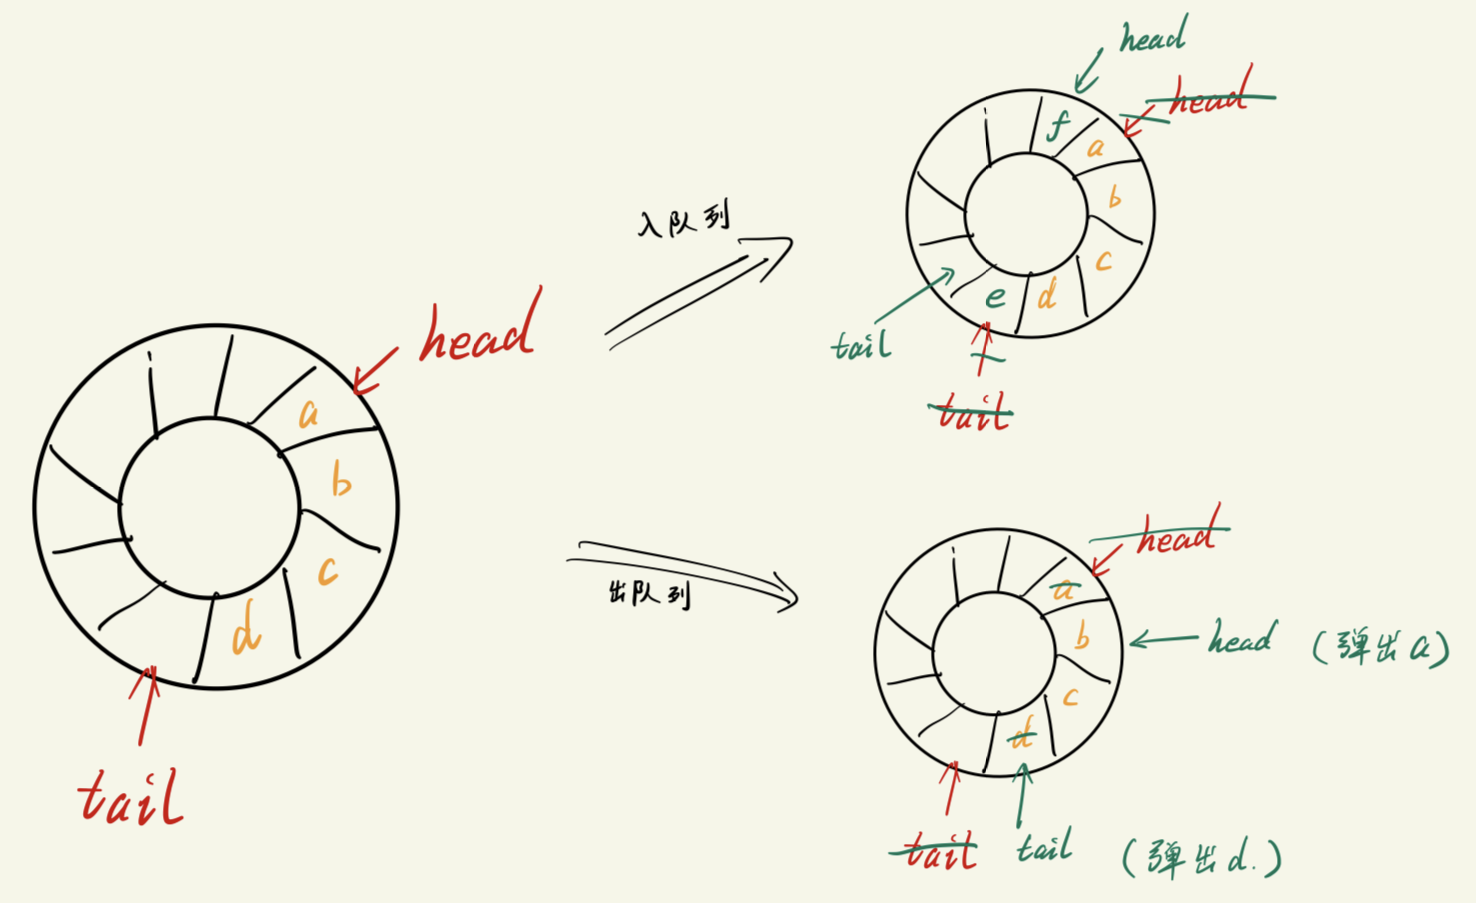 head
a
b
c
d
tail
入队列
head
head
f
a
b
c
d
e
tail
tail
出队列
head
a
b
head (弹出a)
c
d
tail tail (弹出d.)